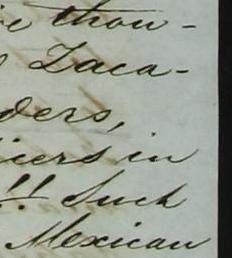 thou-
Zaca-
ders,
icers in
!! Such
Mexican